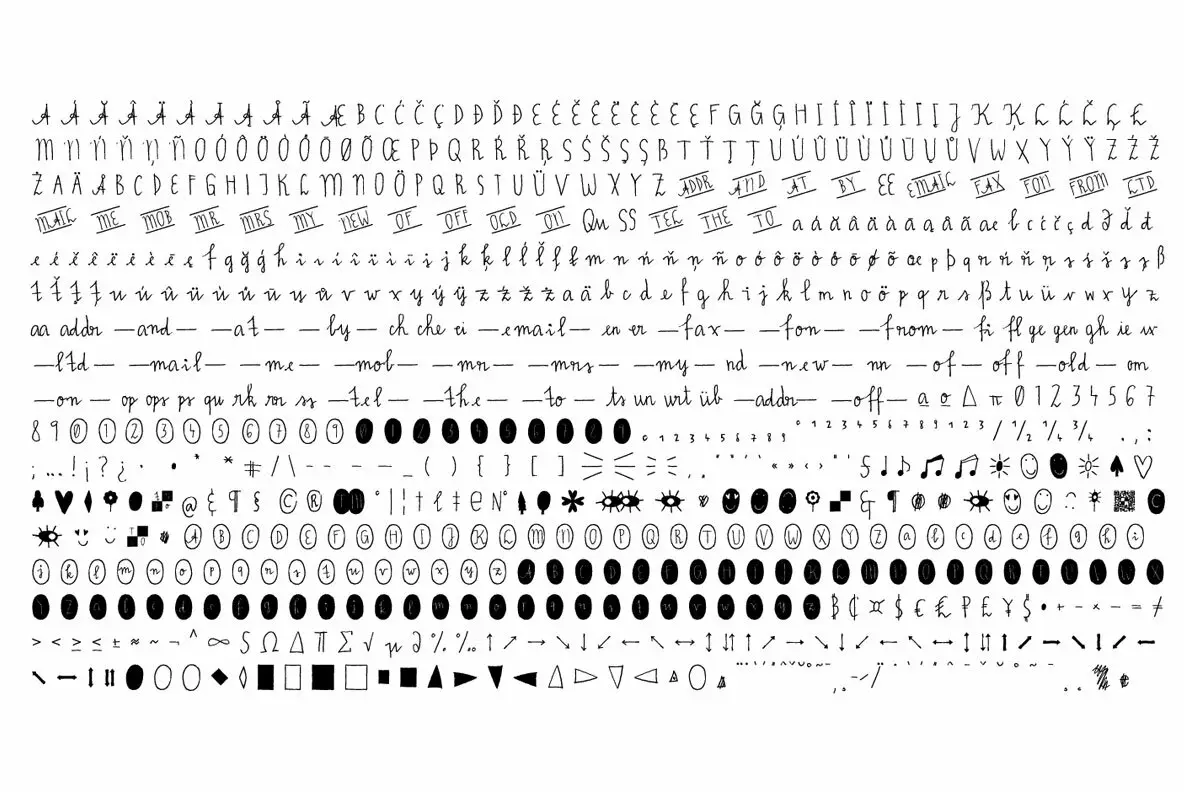 A Á Ă Â Ä À Ā Ą Å Ã Æ B C Ć Č Ç D Ð Ď Đ E É Ě Ê Ë Ė È Ē Ę F G Ğ Ģ H I Í Î Ï İ Ì Ī Į J K Ķ L Ĺ Ľ Ļ Ł
M N Ń Ň Ņ Ñ O Ó Ô Ö Ò Ő Ō Ø Õ Œ P Þ Q R Ŕ Ř Ŗ S Ś Š Ş Ș ß T Ť Ţ Ț U Ú Û Ü Ù Ű Ū Ų Ů V W X Y Ý Ÿ Z Ź Ž
Ż A Ä Å B C D E F G H I J K L M N O Ö P Q R S T U Ü V W X Y Z ADDR AND AT BY EE EMAIL FAX FON FROM LTD
MAIL ME MOB MR MRS MY NEW OF OFF OLD ON Qu SS TEL THE TO a á ă â ä à ā ą å ã æ b c ć č ç d ð ď đ
e é ě ê ë ė è ē ę f g ğ ģ h i ı í î ï i ì ī į j k ķ l ĺ ľ ļ ł m n ń ň ņ ñ o ó ô ö ò ő ō ø õ œ p þ q r ŕ ř ŗ s ś š ş ș ß
t ť ţ ț u ú û ü ù ű ū ų ů v w x y ý ÿ z ź ž ż a ä b c d e f g h i j k l m n o ö p q r s ß t u ü v w x y z
aa addr —and— —at— —by— ch che ei —email— en er —fax— —fon— —from— fi fl ge gen gh ie ix
—ltd— —mail— —me— —mob— —mr— —mrs— —my— nd —new— nn —of— off —old— om
—on— op ops ps qu rk ror ss —tel— —the— —to— ts un urt üb —addr— —off— a o ∆ π 0 1 2 3 4 5 6 7
8 9 0 1 2 3 4 5 6 7 8 9 0 1 2 3 4 5 6 7 8 9 0 1 2 3 4 5 6 7 8 9 0 1 2 3 4 5 6 7 8 9 / ½ ¼ ¾ . , :
; … ! ¡ ? ¿ · • * # / \ - – — _ ( ) { } [ ] « » ‹ › § ♪ ♪ ♫ ♫ ☀ ☺ ☻ ☼ ♠ ♡
♣ ♥ @ & ¶ § © ® TM ° | ¦ † ℓ ‡ e № & ¶ C
A B C D E F G H I J K L M N O P Q R T U V W X Y Z a b c d e f g h i
j k l m n o p q r s t u v w x y z A B C D E F G H I J K L M N O P Q R T U V W X
Y Z a b c d e f g h i j k l m n o p q r s t u v w x y z ฿ ₵ ¤ $ € ₤ ₽ £ ¥ $ • + − × − = ≠
> < ≥ ≤ ± ≈ ~ ¬ ^ ∞ ∫ Ω ∆ ∏ ∑ √ µ ∂ % ‰ ↑ ↗ → ↘ ↓ ↙ ← ↖ ↔